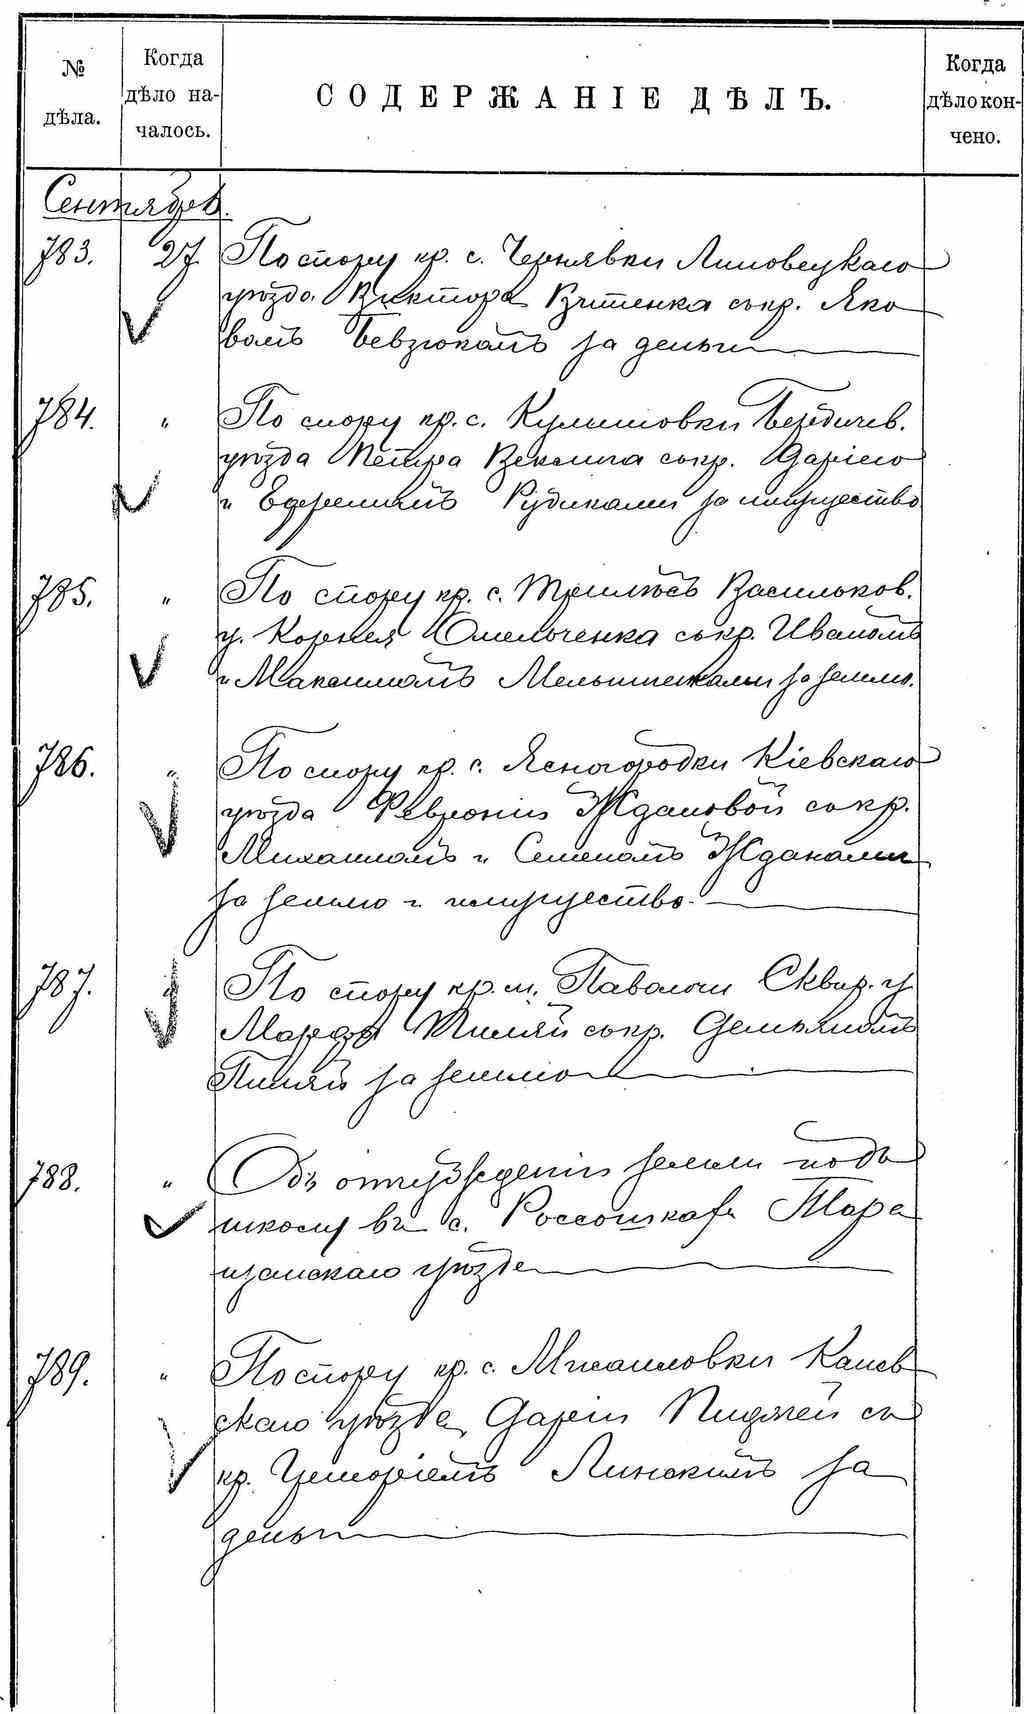 № дѣла.
Когда дѣло на-чалось.
СОДЕРЖАНІЕ ДѢЛЪ.
Когда дѣло кон-чено.
Сентябрь.
783. 27 По спору кр. с. Чернявки Липовецкаго
уѣзда Виктора съ кр. Яко
вомъ Бевзюкомъ за деньги
784. " По спору кр. с. Кулешовки Бердичев.
уѣзда Петра Векленка съ кр. Даріею
и Ефремомъ Рудиками за имущество
785. " По спору кр. с. Трилѣсъ Васильков.
у. Корнея Омельченка съ кр. Иваномъ
и Максимомъ Мельниченками за землю.
786. " По спору кр. с. Ясногородки Кіевскаго
уѣзда Февроніи Ждановой съ кр.
Михаиломъ и Семеномъ Жданами
за землю и имущество.
787. " По спору кр. м. Паволочи Сквир. у.
съ кр. Демьяномъ
за землю
788. " Объ отчужденіи земли подъ
школу въ с. Россошкахъ Тара
щанскаго уѣзда
789. " По спору кр. с. Михайловки Канев
скаго уѣзда Даріи съ
кр. Григоріемъ Линскимъ за
деньги